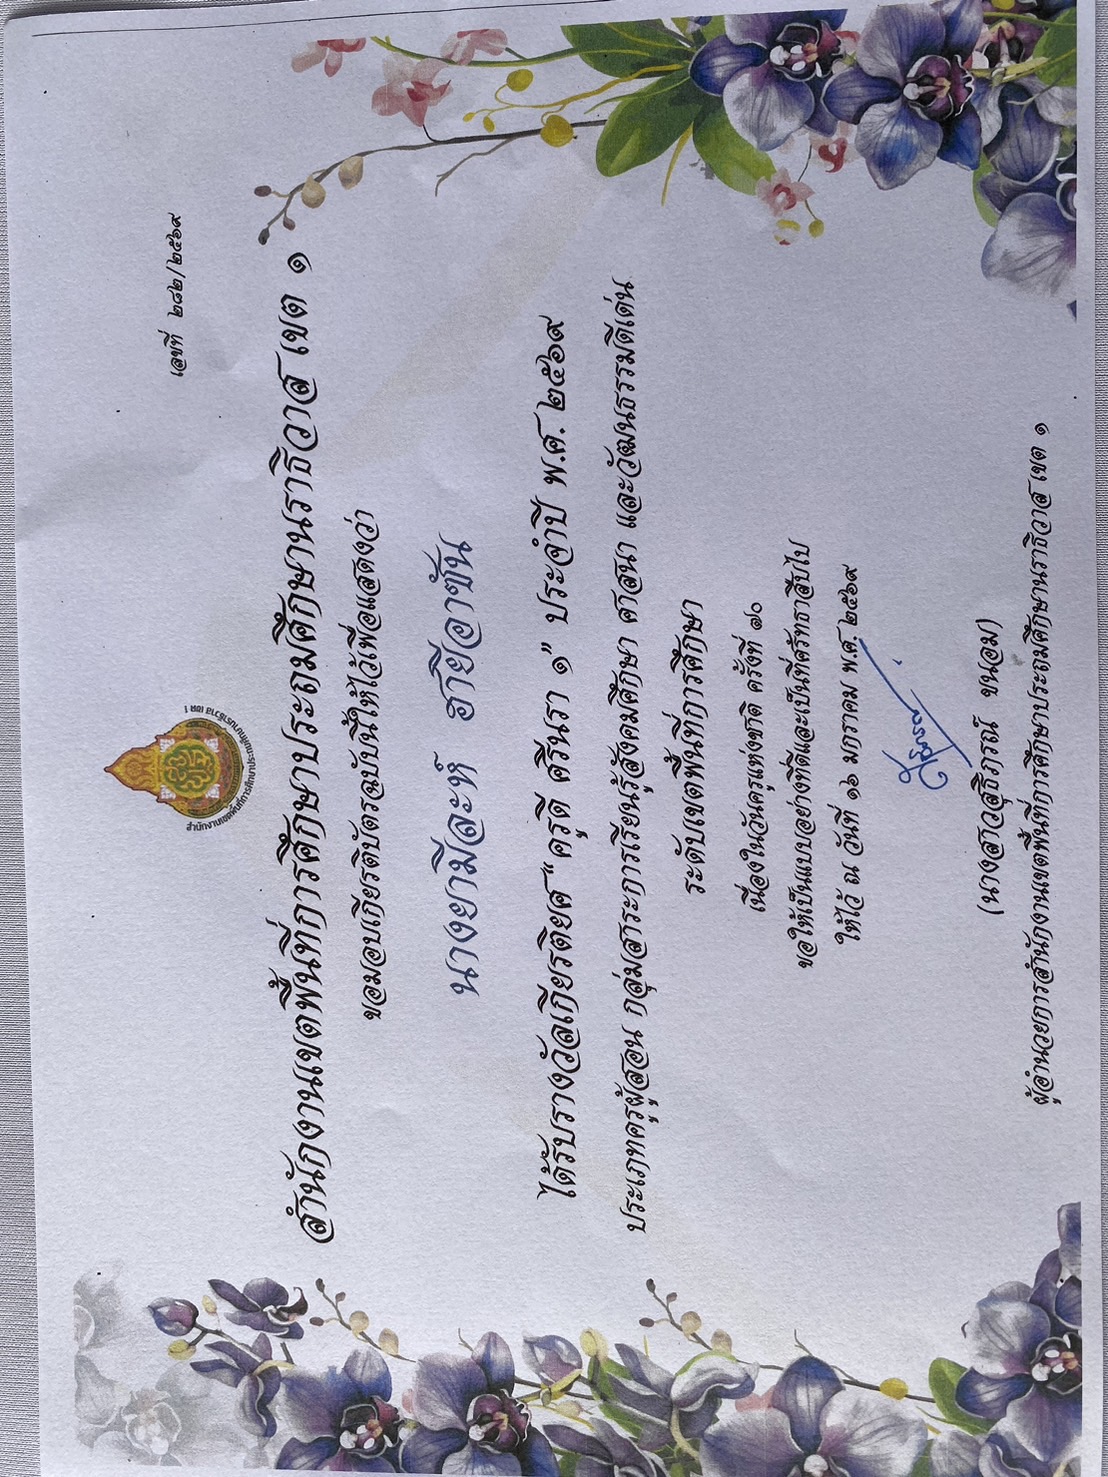 เลขที่ ๒๘๒/๒๕๖๙
สำนักงานเขตพื้นที่การศึกษาประถมศึกษานราธิวาส เขต ๑
ขอมอบเกียรติบัตรฉบับนี้ให้ไว้เพื่อแสดงว่า
นางยามีละห์ ฮายีอาซัน
ได้รับรางวัลเกียรติยศ "ครูดี ศรีนรา ๑" ประจำปี พ.ศ. ๒๕๖๙
ประเภทครูผู้สอน กลุ่มสาระการเรียนรู้สังคมศึกษา ศาสนา และวัฒนธรรมดีเด่น
ระดับเขตพื้นที่การศึกษา
เนื่องในวันครูแห่งชาติ ครั้งที่ ๗๐
ขอให้เป็นแบบอย่างที่ดีและเป็นที่ศรัทธาสืบไป
ให้ไว้ ณ วันที่ ๑๖ มกราคม พ.ศ. ๒๕๖๙
(นางสาวสุธิภรณ์ ขนอม)
ผู้อำนวยการสำนักงานเขตพื้นที่การศึกษาประถมศึกษานราธิวาส เขต ๑